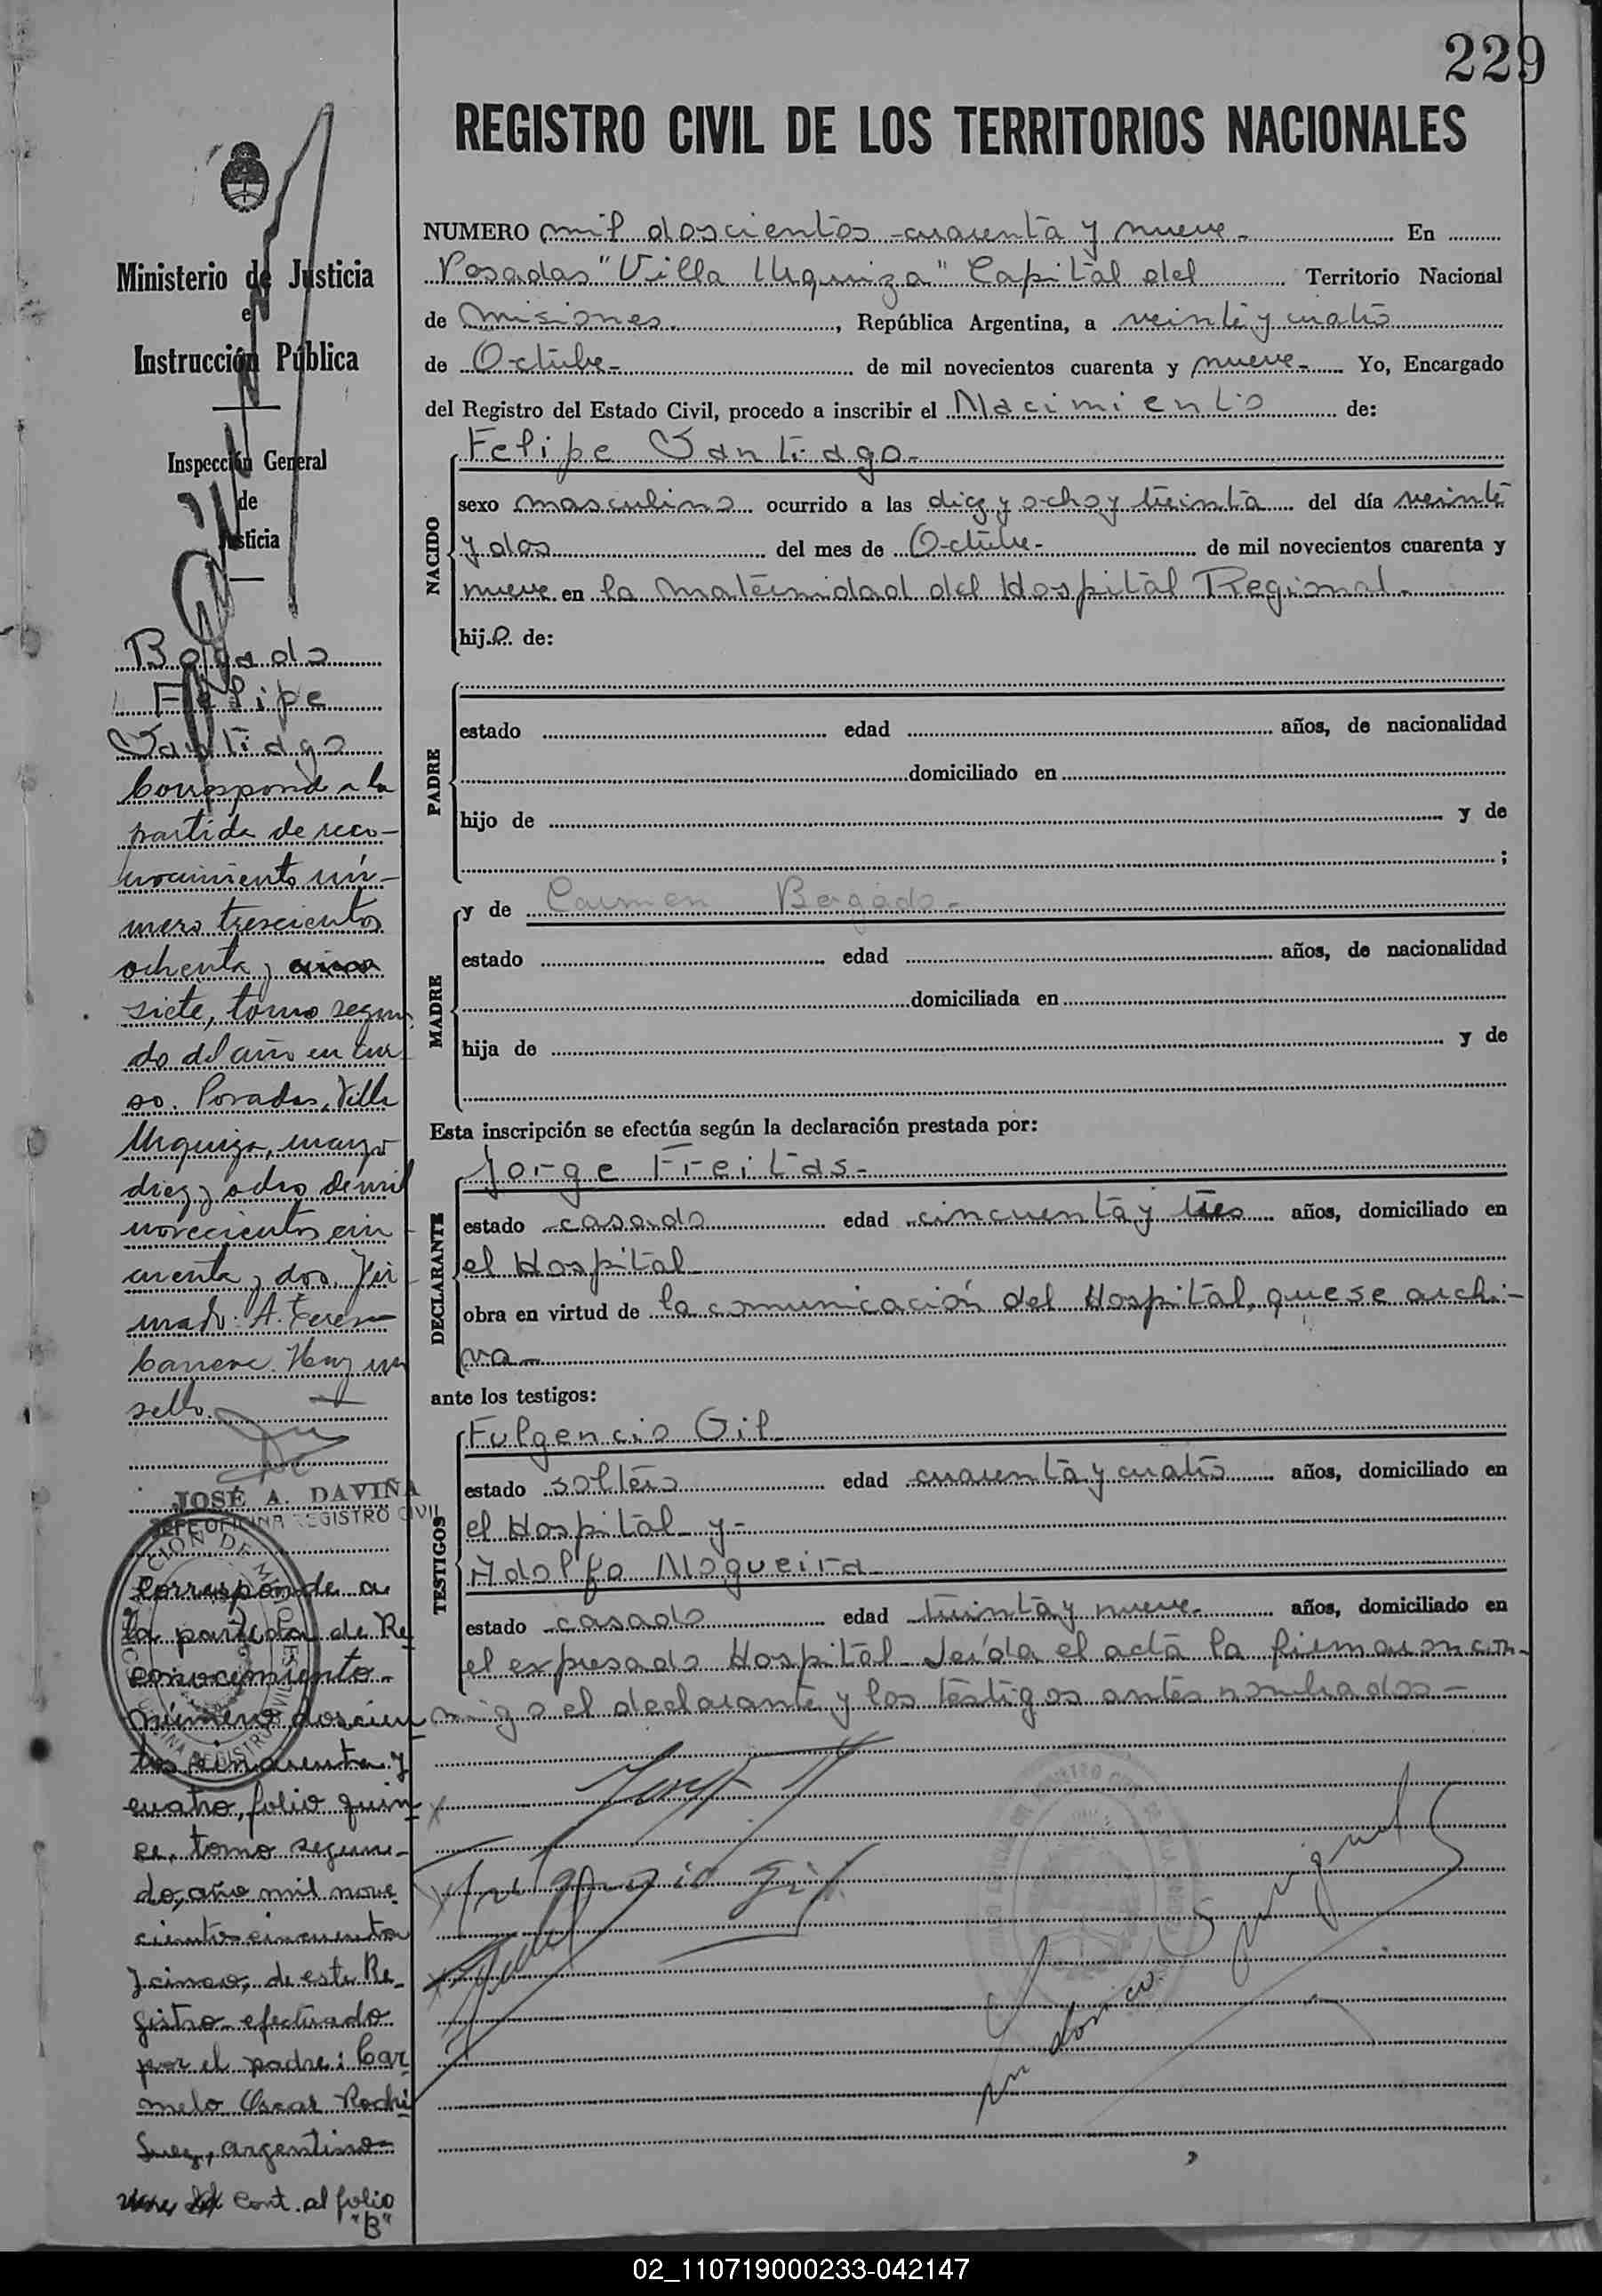 229
REGISTRO CIVIL DE LOS TERRITORIOS NACIONALES
Ministerio de Justicia
e
Instrucción Pública
Inspección General
de
Justicia
Bogado
Felipe
Santiago
Correspond a la
partida de reco-
nocimiento nú-
mero trescientos
ochenta y cinco
siete, tomo segun
do del año en cur
so. Posadas, Villa
Urquiza, mayo
diez y ocho de mil
novecientos cin
cuenta y dos. Fir
mado: A. Teresa
Carrera. Hay un
sello.
JOSÉ A. DAVIÑA
JEFE OFICINA REGISTRO CIVIL
Corresponde a
la partida de Re
conocimiento
número doscien
tos cincuenta y
cuatro, folio quin
ce, tomo segun-
do, año mil nove
cientos cincuenta
y cinco, de este Re-
gistro efectuado
por el padre: Car
melo Oscar Rodrí
guez, argentino
Cont. al folio
"B"
NUMERO mil doscientos cuarenta y nueve- En
Posadas "Villa Urquiza" Capital del Territorio Nacional
de Misiones, República Argentina, a veinte y cuatro
de Octubre- de mil novecientos cuarenta y nueve- Yo, Encargado
del Registro del Estado Civil, procedo a inscribir el Nacimiento de:
Felipe Santiago-
NACIDO
sexo masculino ocurrido a las diez y ocho y treinta del día veinte
y dos del mes de Octubre- de mil novecientos cuarenta y
nueve en la Maternidad del Hospital Regional-
hijo de:
PADRE
estado edad años, de nacionalidad
domiciliado en
hijo de y de
;
MADRE
y de Carmen Bogado-
estado edad años, de nacionalidad
domiciliada en
hija de y de
Esta inscripción se efectúa según la declaración prestada por:
DECLARANTE
Jorge Freitas-
estado casado edad cincuenta y tres años, domiciliado en
el Hospital
obra en virtud de la comunicación del Hospital, que se archi-
va-
ante los testigos:
TESTIGOS
Fulgencio Gil
estado soltero edad cuarenta y cuatro años, domiciliado en
el Hospital y-
Adolfo Nogueira
estado casado edad treinta y nueve- años, domiciliado en
el expresado Hospital- Leída el acta la firmaron con-
migo el declarante y los testigos antes nombrados-
Fulgencio Gil
02_110719000233-042147